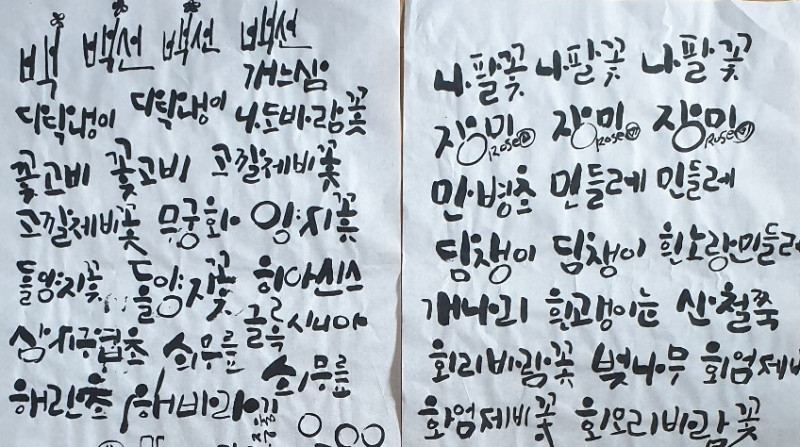 백 백선 백선 백선
개느삼
댕댕이 나도바람꽃
꽃고비 꽃고비 고깔제비꽃
고깔제비꽃 무궁화 양지꽃
들양지꽃 들양지꽃 히아신스
글록시니아
삼지구엽초 쇠무릎 쇠무릎
해란초 해바라기
나팔꽃 나팔꽃 나팔꽃
장미 Rose 장미 Rose 장미 Rose
민들레 민들레
담쟁이 담쟁이 흰노랑민들레
개나리 흰괭이눈 산철쭉
회리바람꽃 벚나무
화엄제비꽃 회오리바람꽃